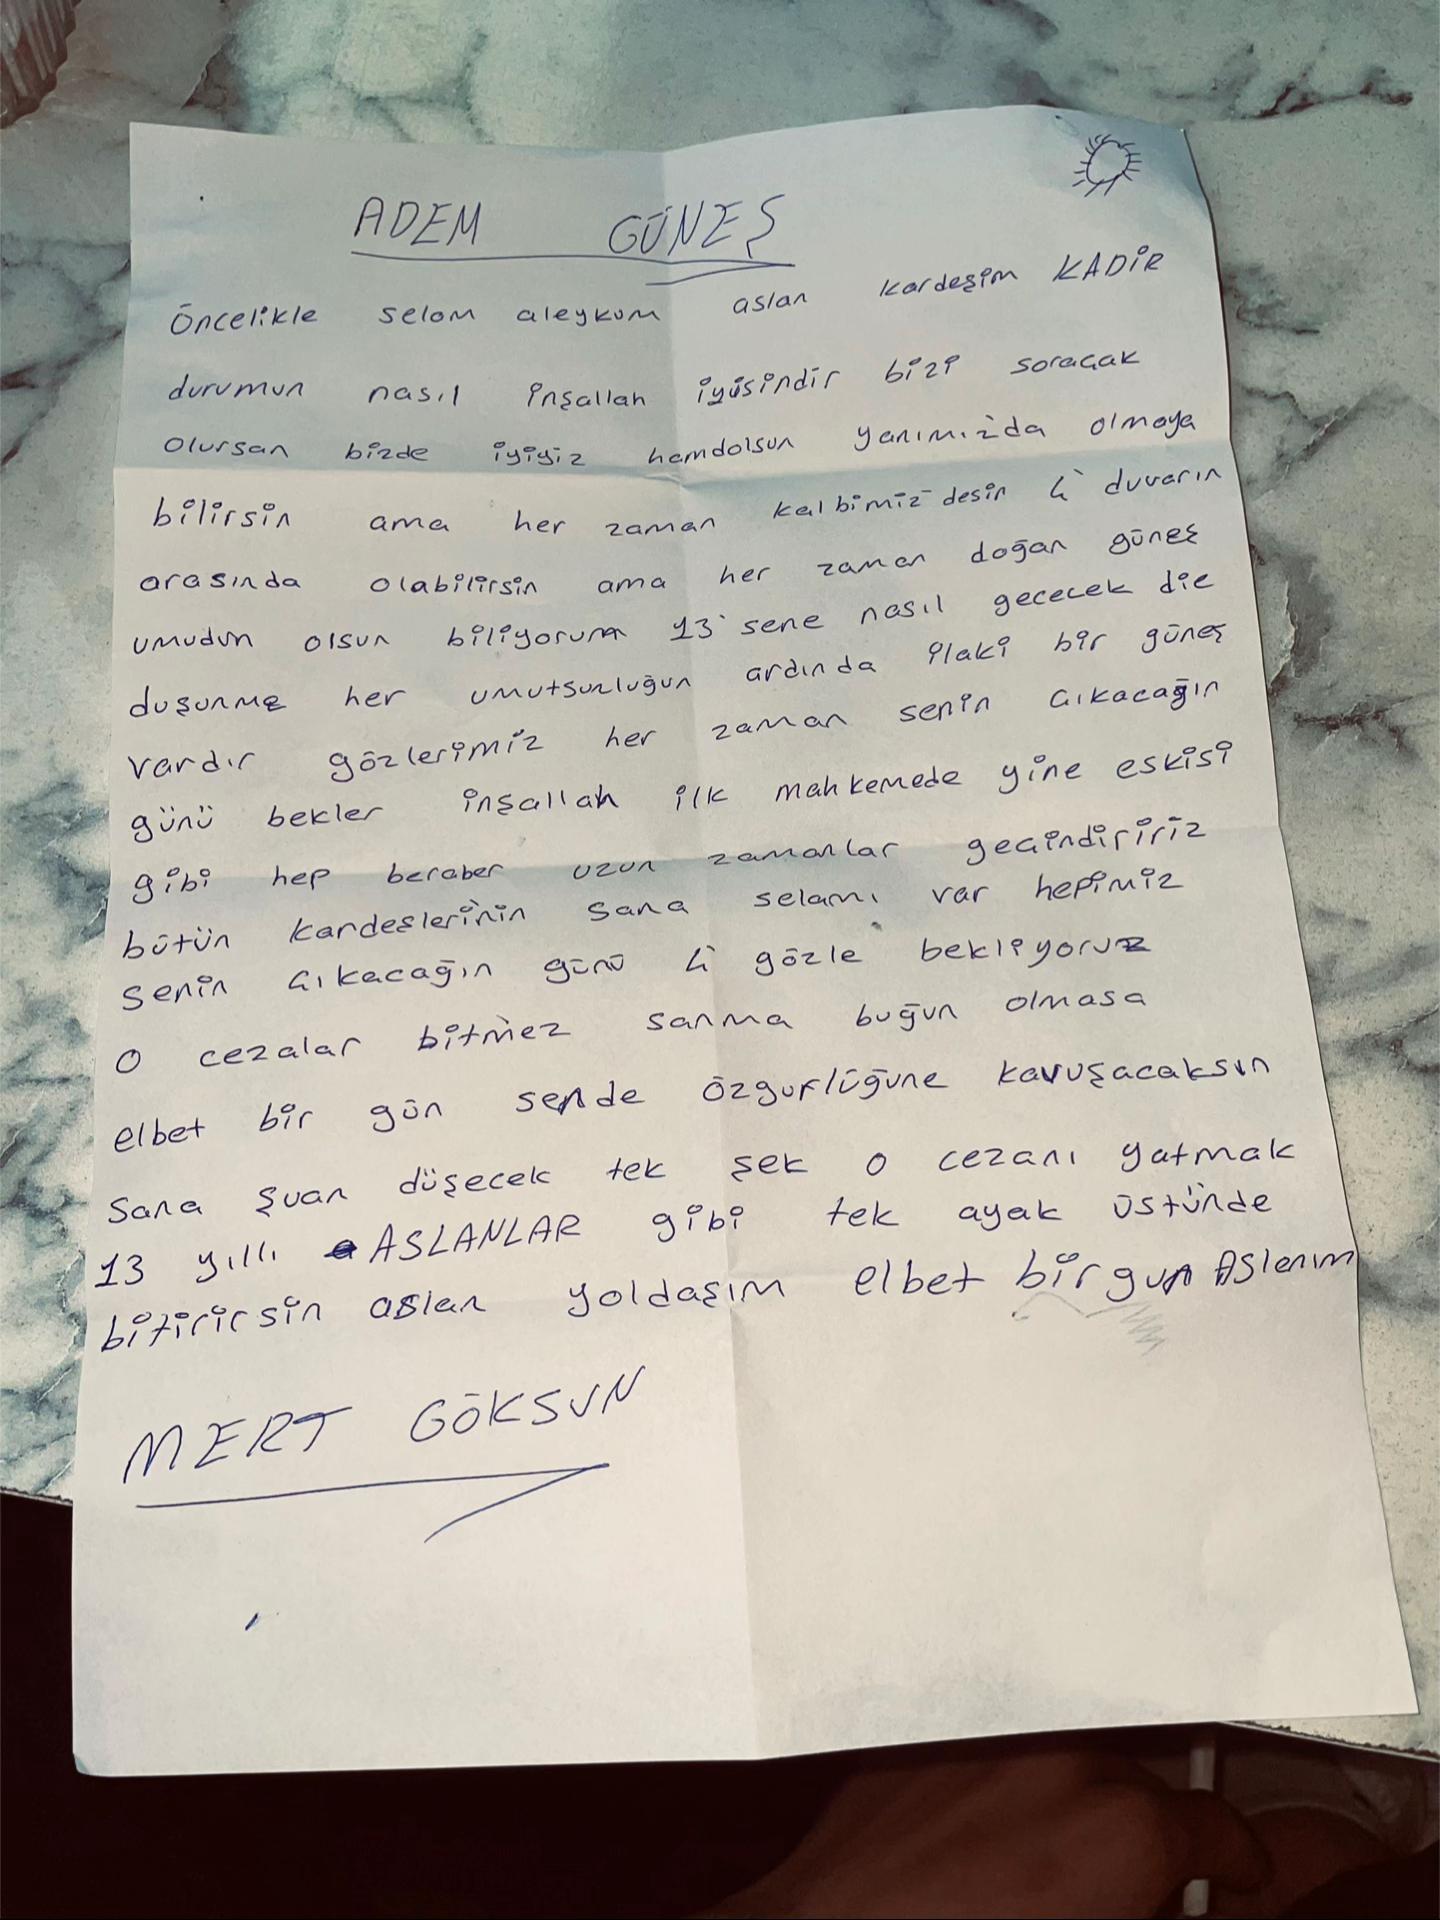 ADEM GÜNEŞ
Öncelikle selam aleykum aslan kardeşim KADİR
durumun nasıl inşallah iyisindir bizi soraçak
olursan bizde iyiyiz hamdolsun yanımızda olmaya
bilirsin ama her zaman kalbimiz desin 4 duvarın
arasında olabilirsin ama her zaman doğan güneş
umudun olsun biliyorum 13 sene nasıl gececek die
duşunme her umutsuzluğun ardında ilaki bir güneş
vardır gözlerimiz her zaman senin çıkacağın
günü bekler inşallah ilk mahkemede yine eskisi
gibi hep beraber uzun zamanlar geçindiririz
bütün kardeşlerinin sana selamı var hepimiz
senin çıkacağın günü 4 gözle bekliyoruz
o cezalar bitmez sanma buğun olmasa
elbet bir gün sende özgurlüğüne kavuşacaksın
sana şuan düşecek tek şek o cezanı yatmak
13 yıllı ASLANLAR gibi tek ayak üstünde
bitirirsin aslan yoldaşım elbet bir gun Aslanım
MERT GÖKSUN